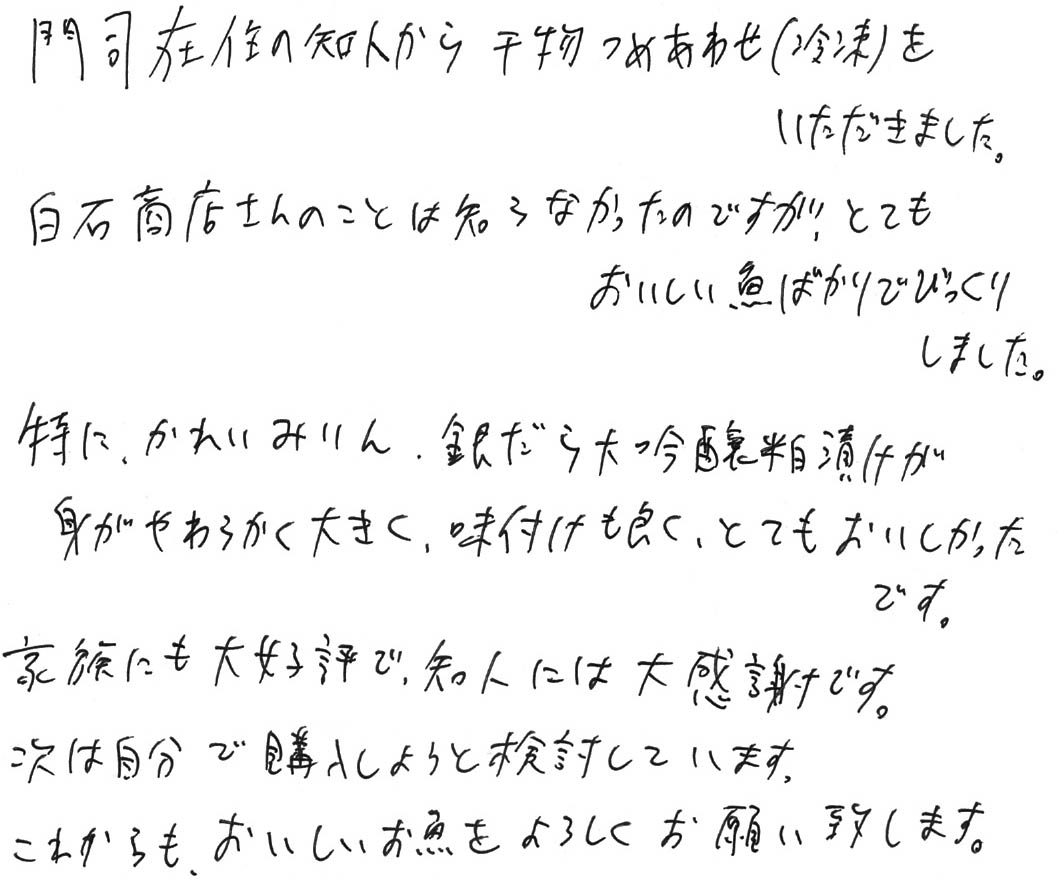 門司在住の知人から干物つめあわせ(冷凍)を
いただきました。
白石商店さんのことは知らなかったのですが、とても
おいしい魚ばかりでびっくり
しました。
特に、かれいみりん、銀だら大吟醸粕漬けが
身がやわらかく大きく、味付けも良く、とてもおいしかった
です。
家族にも大好評で、知人には大感謝です。
次は自分で購入しようと検討しています。
これからも、おいしいお魚をよろしくお願い致します。